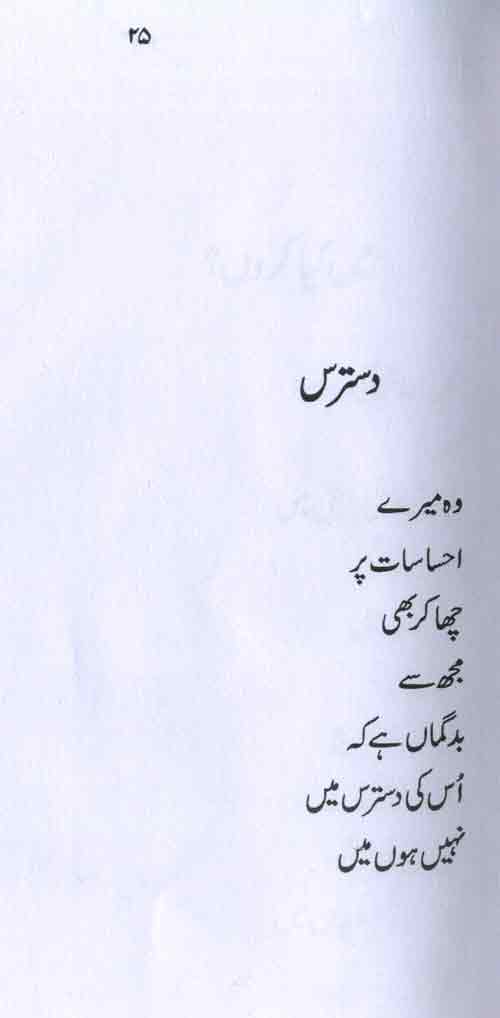 ۲۵
دسترس
وہ میرے
احساسات پر
چھا کر بھی
مجھ سے
بدگماں ہے کہ
اُس کی دسترس میں
نہیں ہوں میں